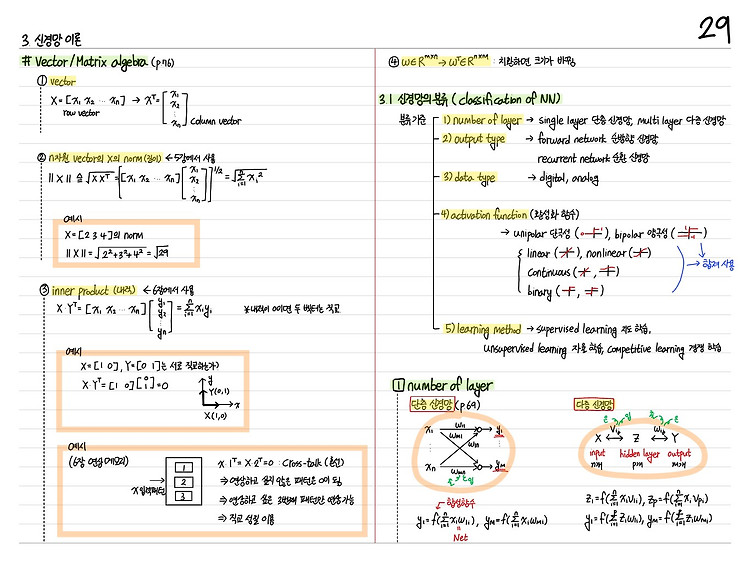 29
3 신경망 이론
# Vector/Matrix algebra (p76)
① vector
X = [x₁ x₂ ⋯ xₙ] → Xᵀ = [x₁ x₂ ⋮ xₙ]
row vector
column vector
② n차원 vector의 X의 norm (길이) ← 5강에서 사용
‖X‖ ≜ √XXᵀ = [[x₁ x₂ ⋯ xₙ] [x₁ x₂ ⋮ xₙ]]^1/2 = √Σᵢ₌₁ⁿ xᵢ²
예시
X = [2 3 4]의 norm
‖X‖ = √2²+3²+4² = √29
③ inner product (내적) ← 6강에서 사용
X·Yᵀ = [x₁ x₂ ⋯ xₙ] [y₁ y₂ ⋮ yₙ] = Σᵢ₌₁ⁿ xᵢyᵢ
※ 내적이 0이면 두 벡터는 직교
예시
X=[1 0], Y=[0 1]는 서로 직교하는가?
X·Yᵀ = [1 0] [0 1] = 0
y
Y(0,1)
x
X(1,0)
예시
(6장 연상 메모리)
X 입력패턴
1
2
3
x·1ᵀ = X·2ᵀ = 0 : Cross-talk (혼선)
⇒ 연상하고 싶지 않은 패턴은 0이 됨
⇒ 연상하고 싶은 패턴만 연상가능
⇒ 직교 성질 이용
④ W∈Rᵐˣⁿ → Wᵀ∈Rⁿˣᵐ : 치환하면 크기가 바뀜
3.1 신경망의 분류 (classification of NN)
분류 기준
1) number of layer → single layer 단층 신경망, multi layer 다층 신경망
2) output type → forward network 순방향 신경망
recurrent network 순환 신경망
3) data type → digital, analog
4) activation function (활성화 함수)
→ unipolar 단극성 ( ), bipolar 양극성 ( )
linear ( ), nonlinear ( )
continuous ( , )
binary ( , )
→ 함께 사용
5) learning method → supervised learning 지도 학습,
Unsupervised learning 자율 학습, competitive learning 경쟁 학습
① number of layer
단층 신경망 (p69)
x₁ w₁₁ y₁
wₘ₁ w₁ₙ
xₙ wₘₙ yₘ
합성함수
y₁ = f(Σᵢ₌₁ⁿ xᵢw₁ᵢ), yₘ = f(Σᵢ₌₁ⁿ xᵢwₘᵢ)
Net
다층 신경망
X ↔ Z ↔ Y
input hidden layer output
n개 p개 m개
z₁ = f(Σᵢ₌₁ⁿ xᵢv₁ᵢ), zₚ = f(Σᵢ₌₁ⁿ xᵢvₚᵢ)
y₁ = f(Σᵢ₌₁ᵖ zᵢw₁ᵢ), yₘ = f(Σᵢ₌₁ᵖ zᵢwₘᵢ)